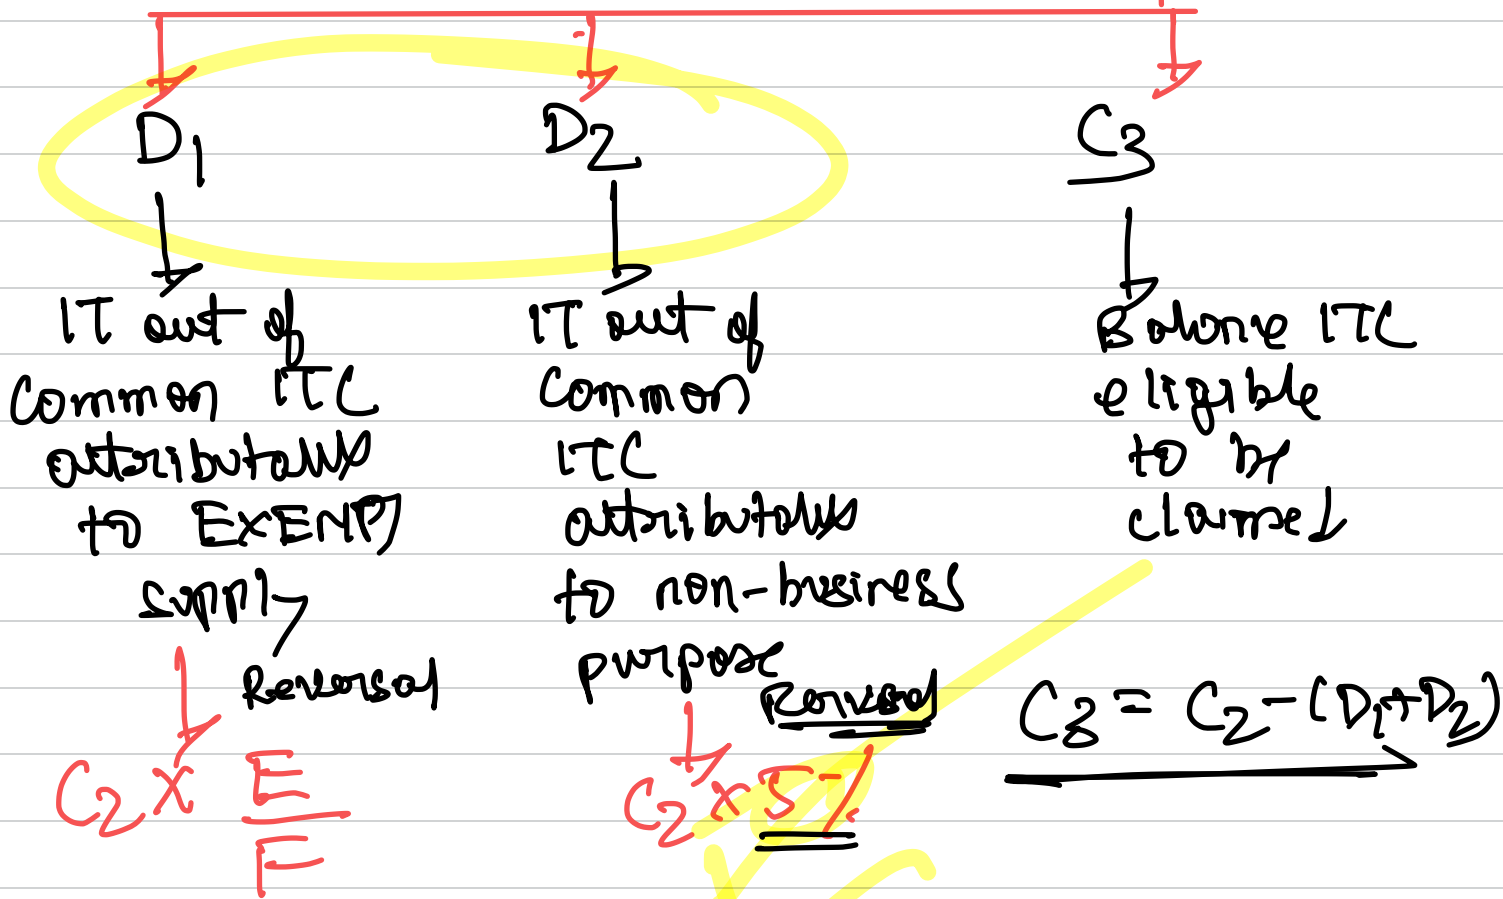 D1
IT out of
common ITC
attributable
to EXEMPT
supply
Reversal
C2 x E/F
D2
IT out of
common
ITC
attributable
to non-business
purpose
Reversal
C2 x 5%
C3
Balance ITC
eligible
to be
claimed
C3 = C2 - (D1+D2)